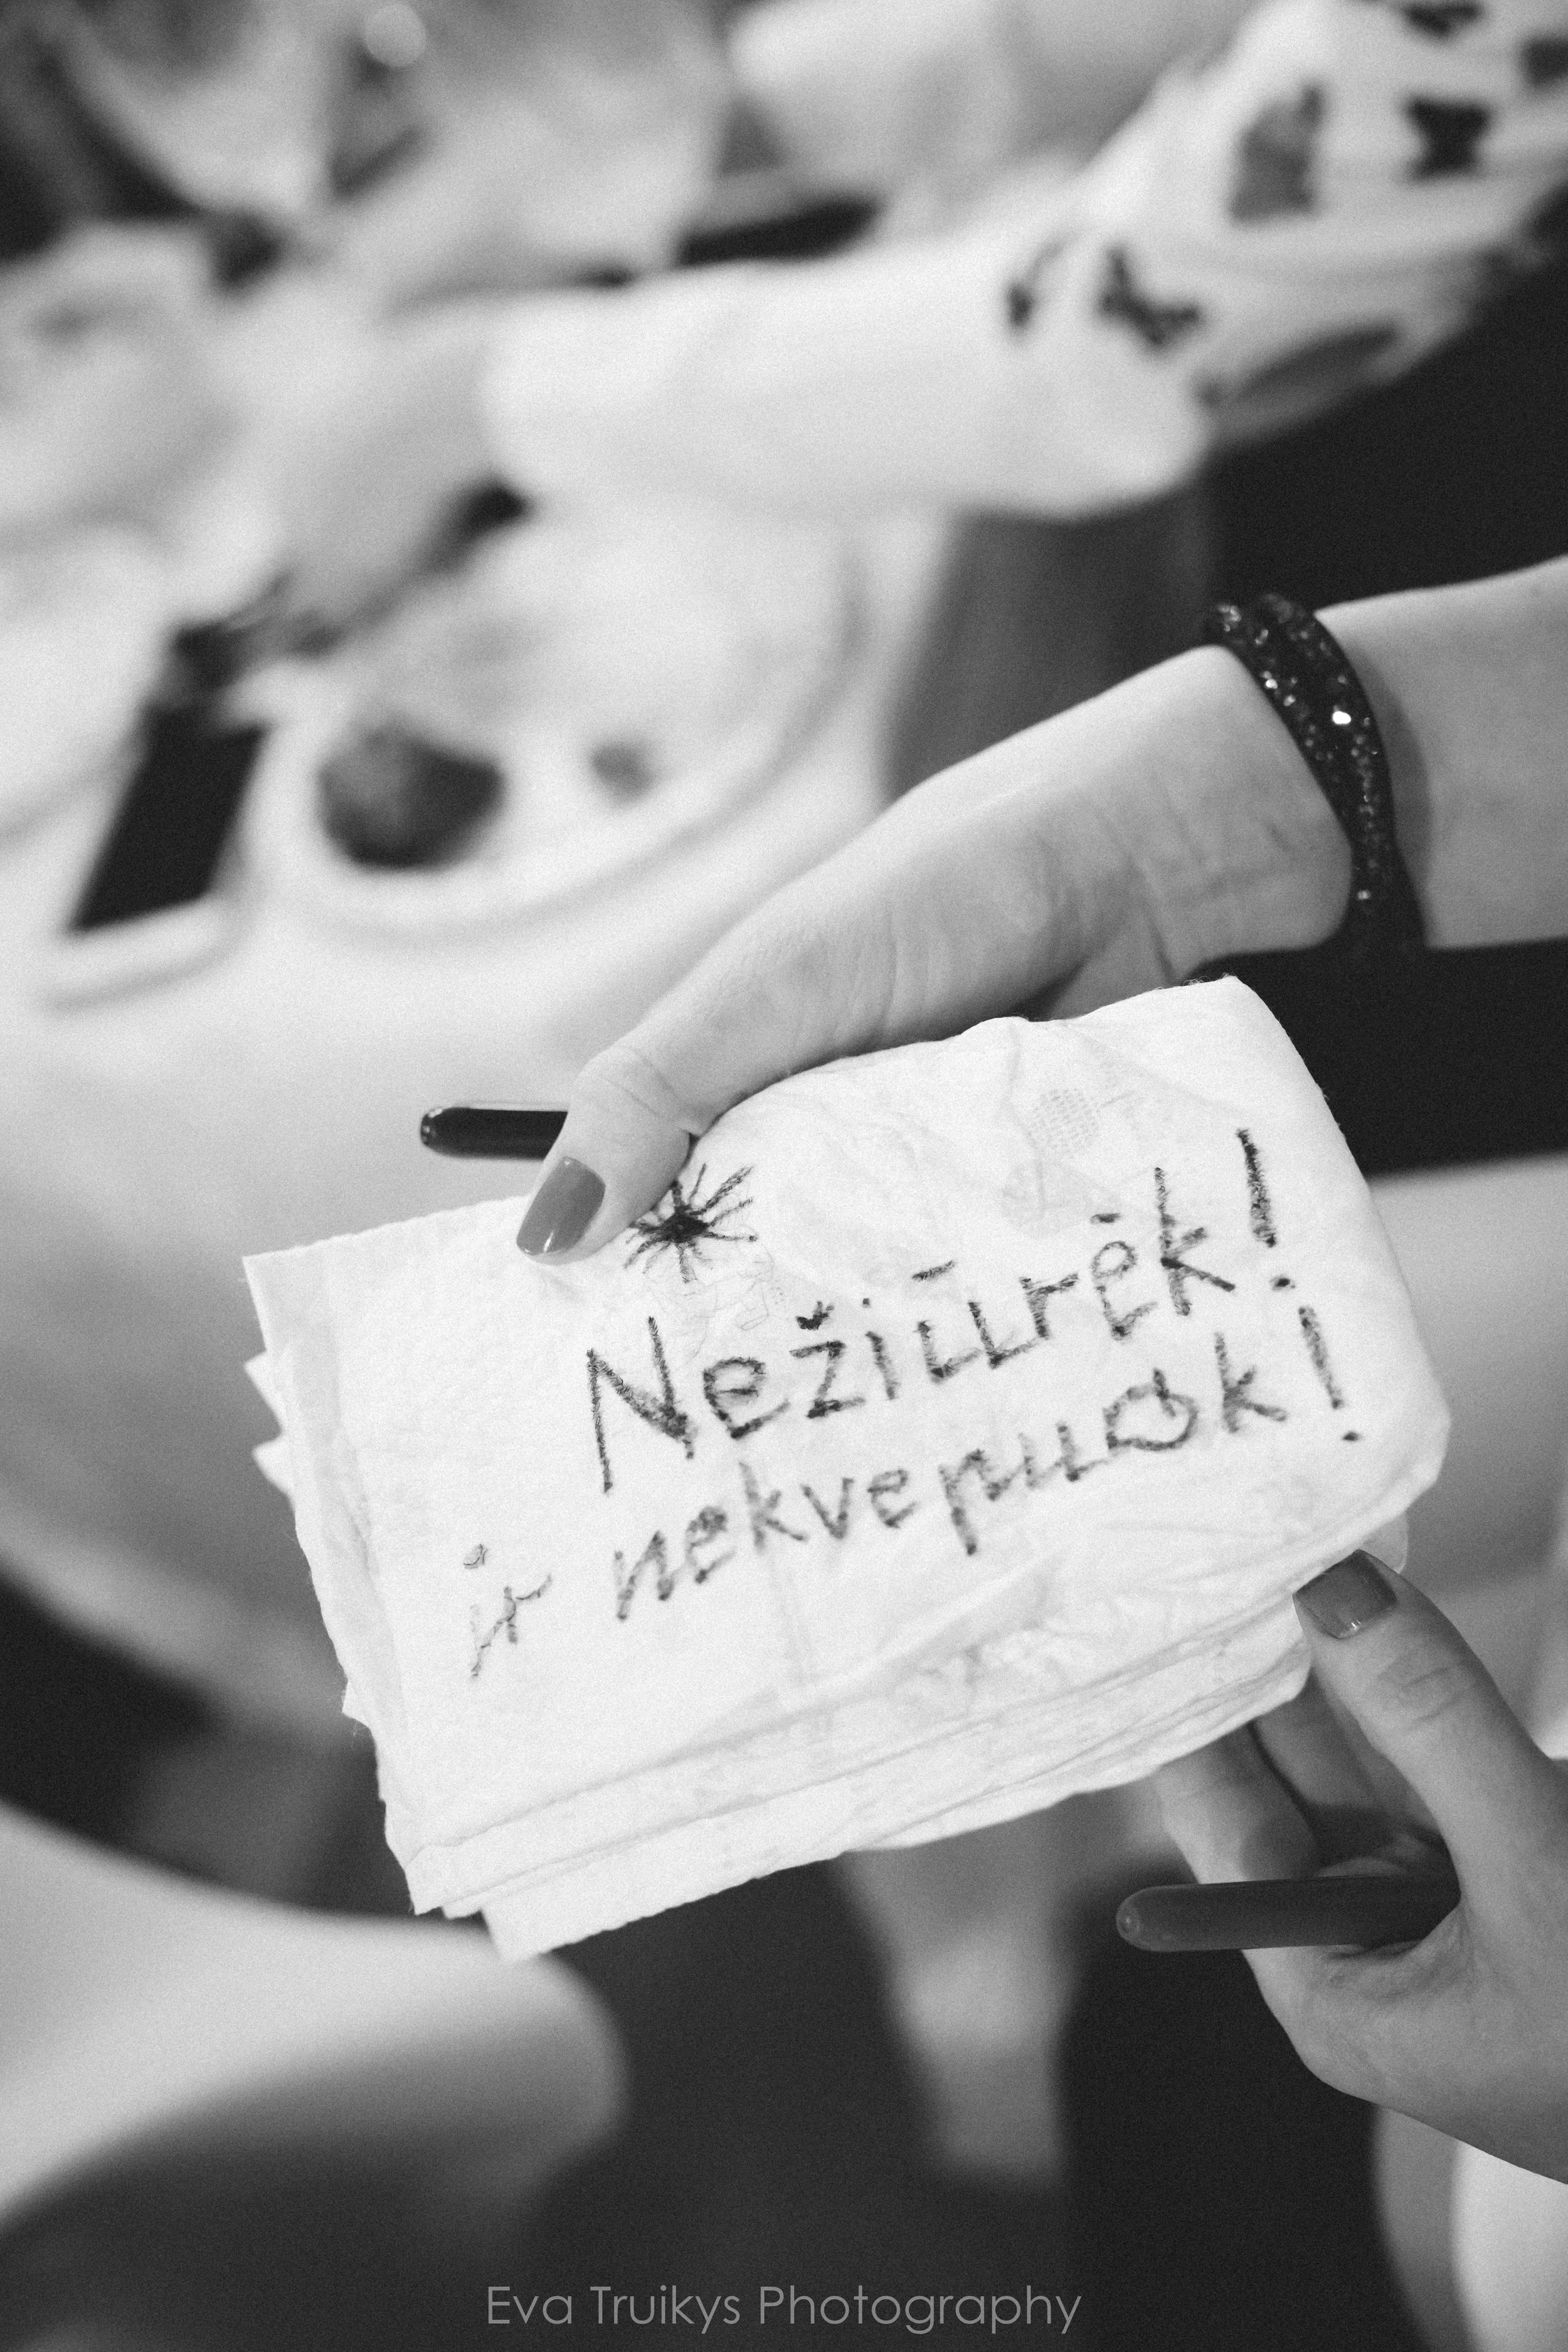 Nežiūrėk!
ir nekvepuok!
Eva Truikys Photography